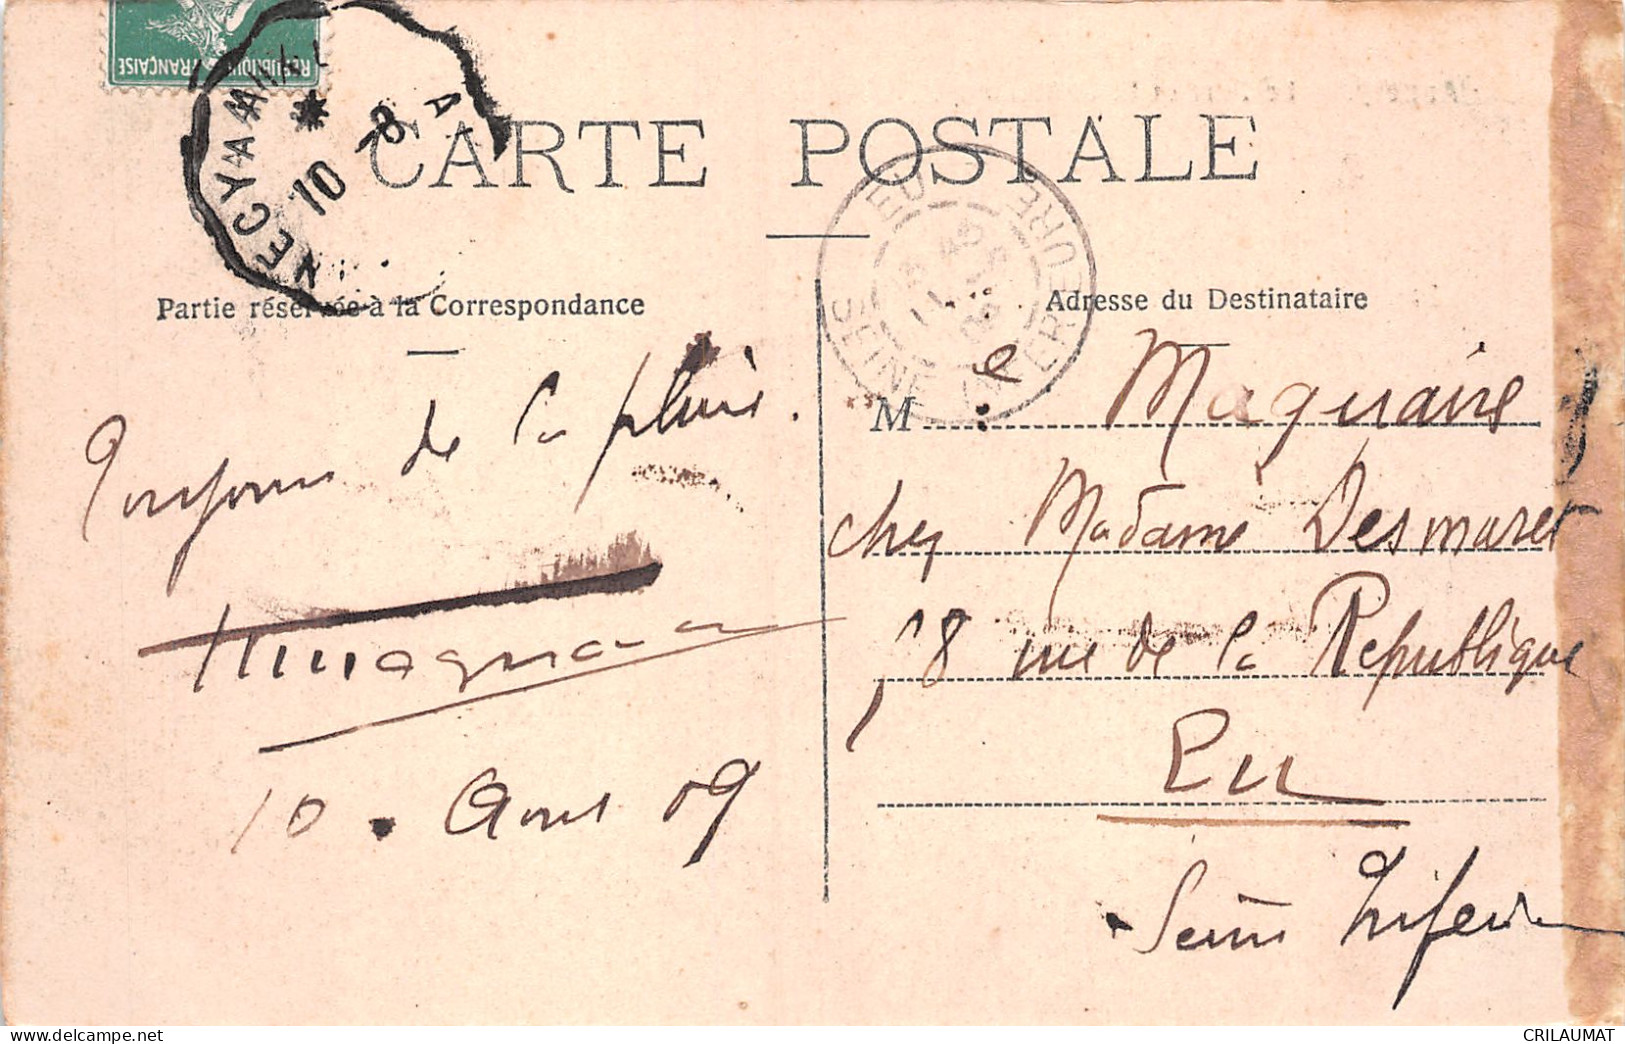 RÉPUBLIQUE FRANÇAISE
10 -8
CARTE POSTALE
EU
SEINE INFERIEURE
Partie réservée à la Correspondance
Adresse du Destinataire
Toujours de la pluie.
10 . Aout 09
M e Maguaire
chez Madame Desmaret
18 rue de la République
Eu
Seine Inferi
delcampe.net
CRILAUMAT